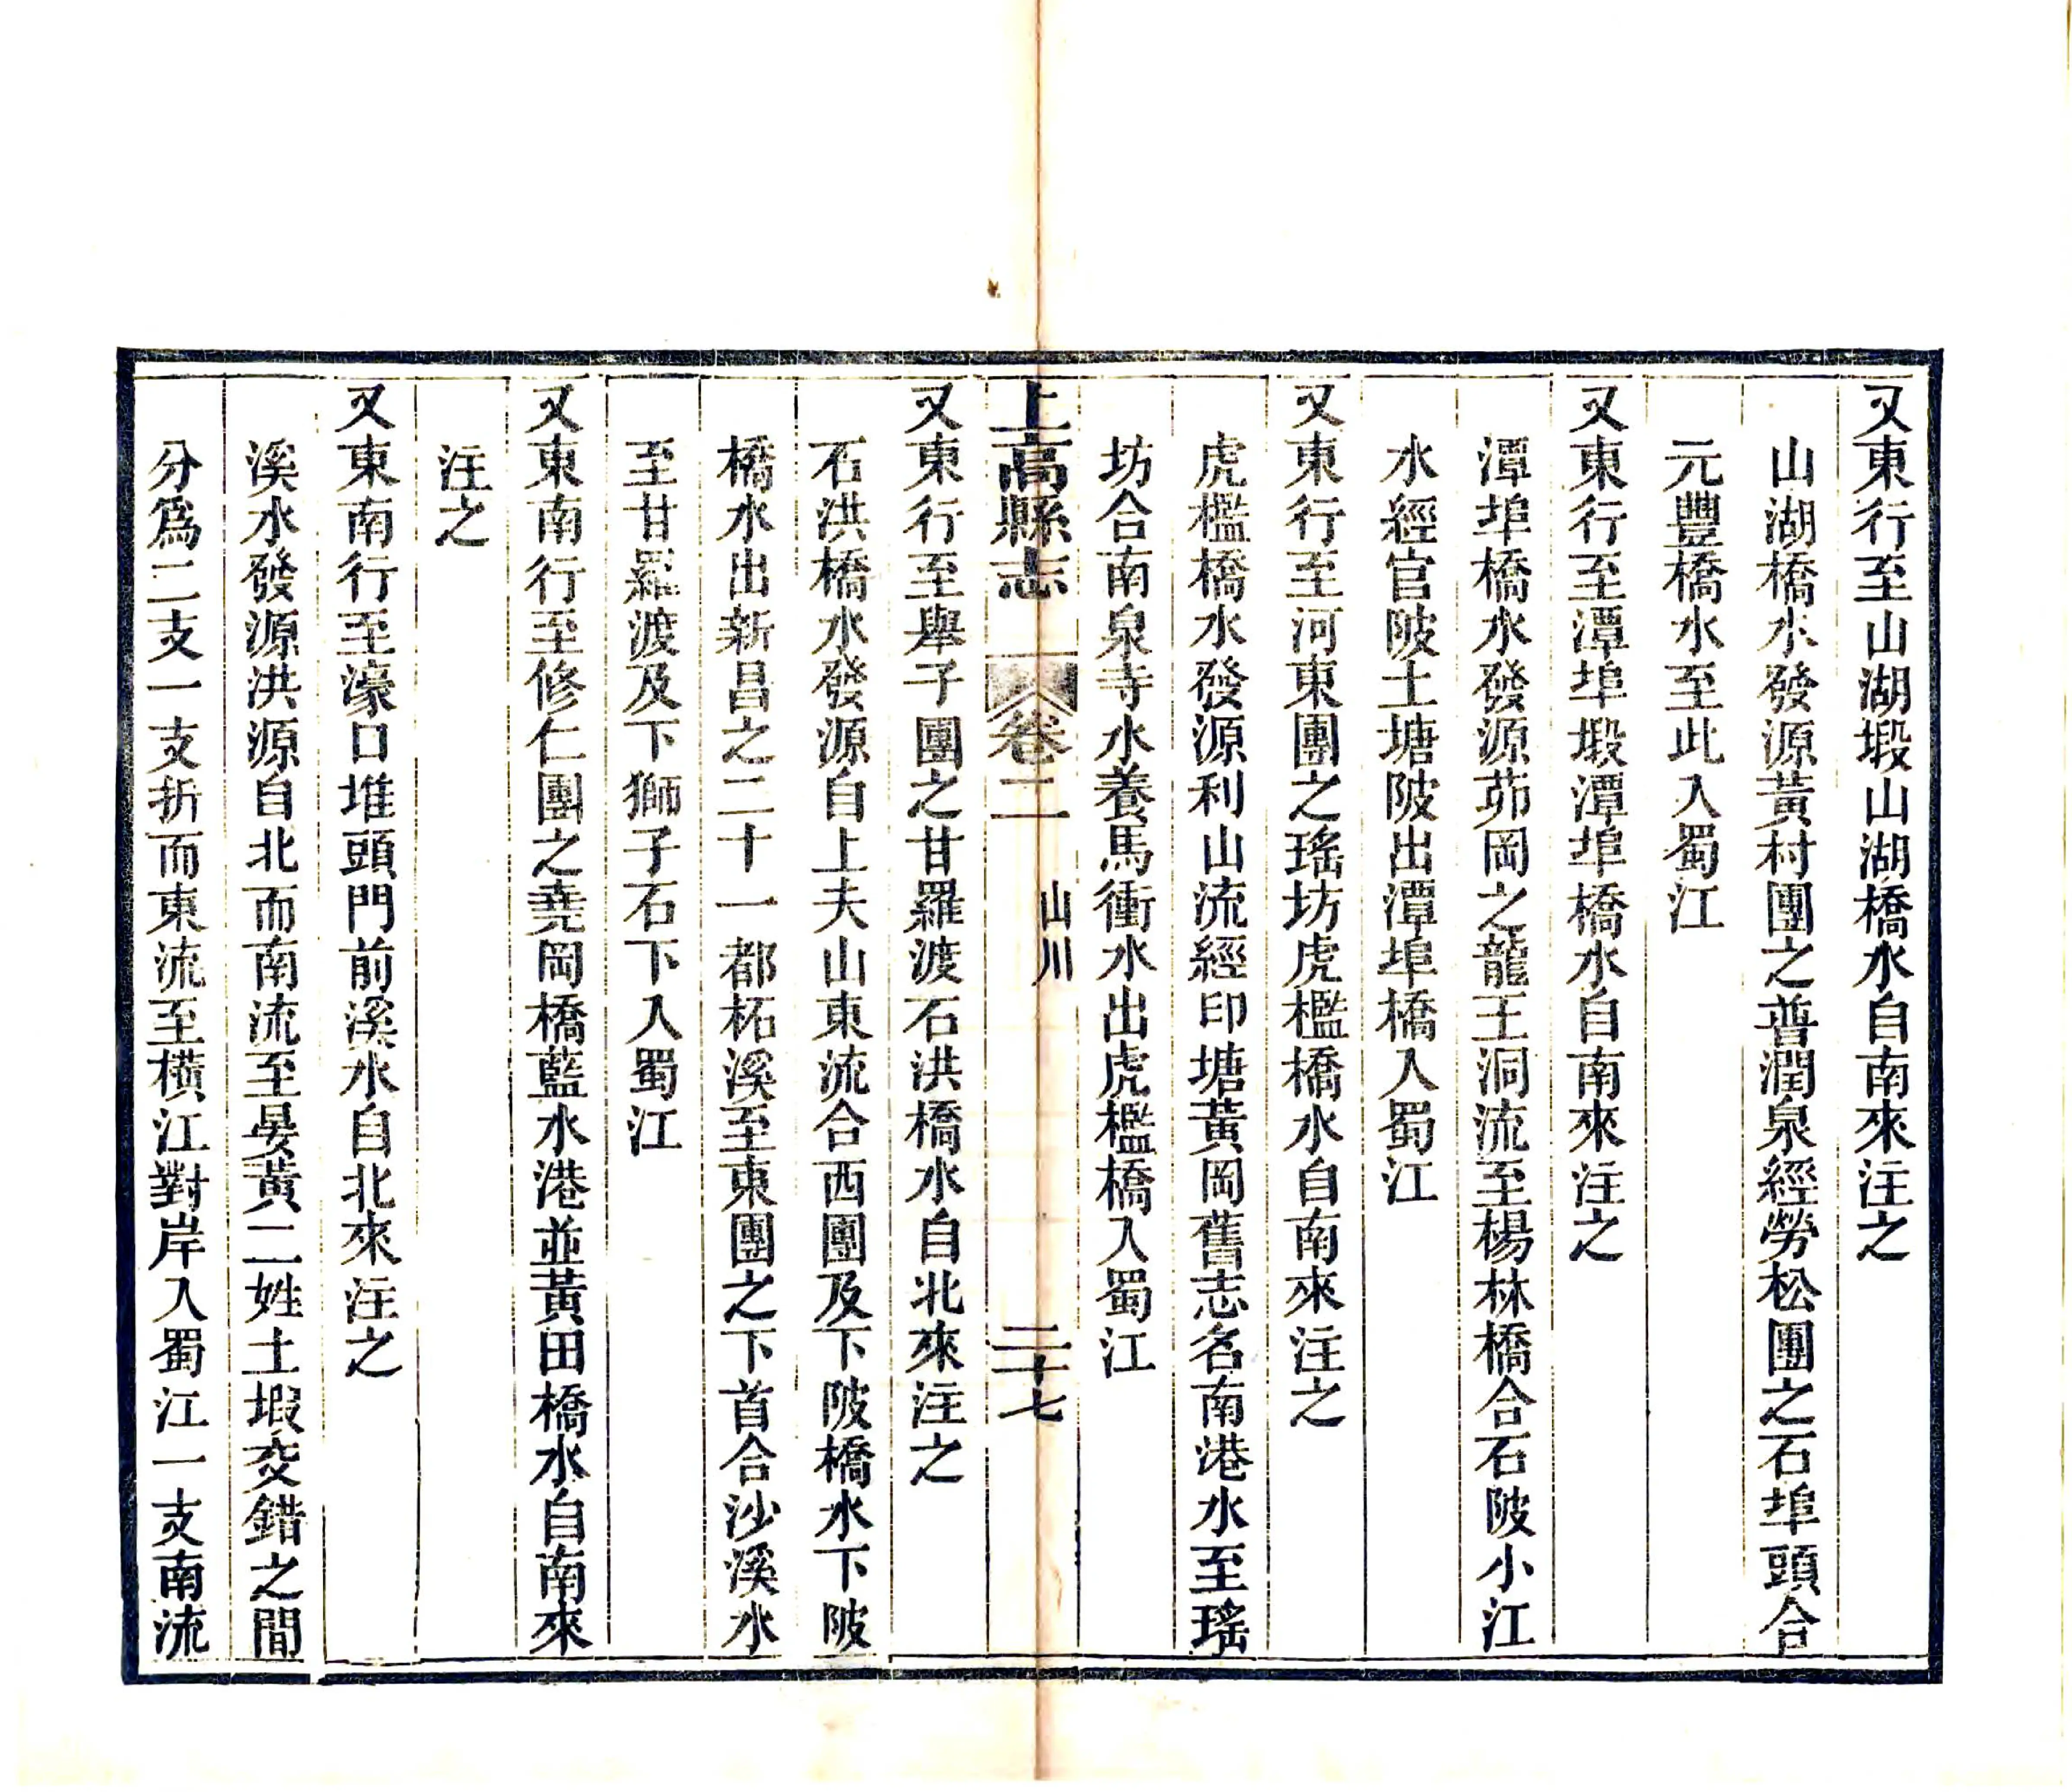 又東行至山湖塅山湖橋水自南來注之
山湖橋水發源黃村團之普潤泉經勞松團之石埠頭合
元豐橋水至此入蜀江
又東行至潭埠塅潭埠橋水自南來注之
潭埠橋水發源茆岡之龍王洞流至楊林橋合石陂小江
水經官陂土塘陂出潭埠橋入蜀江
又東行至河東團之瑤坊虎檻橋水自南來注之
虎檻橋水發源利山流經印塘黃岡舊志名南港水至瑤
坊合南泉寺水養馬衝水出虎檻橋入蜀江
上高縣志 卷二 山川 二十七
又東行至舉子團之甘羅渡石洪橋水自北來注之
石洪橋水發源自上夫山東流合西團及下陂橋水下陂
橋水出新昌之二十一都柘溪至東團之下首合沙溪水
至甘羅渡及下獅子石下入蜀江
又東南行至修仁團之堯岡橋藍水港並黃田橋水自南來
注之
又東南行至濠口堆頭門前溪水自北來注之
溪水發源洪源自北而南流至晏黃二姓土塅交錯之間
分爲二支一支折而東流至橫江對岸入蜀江一支南流